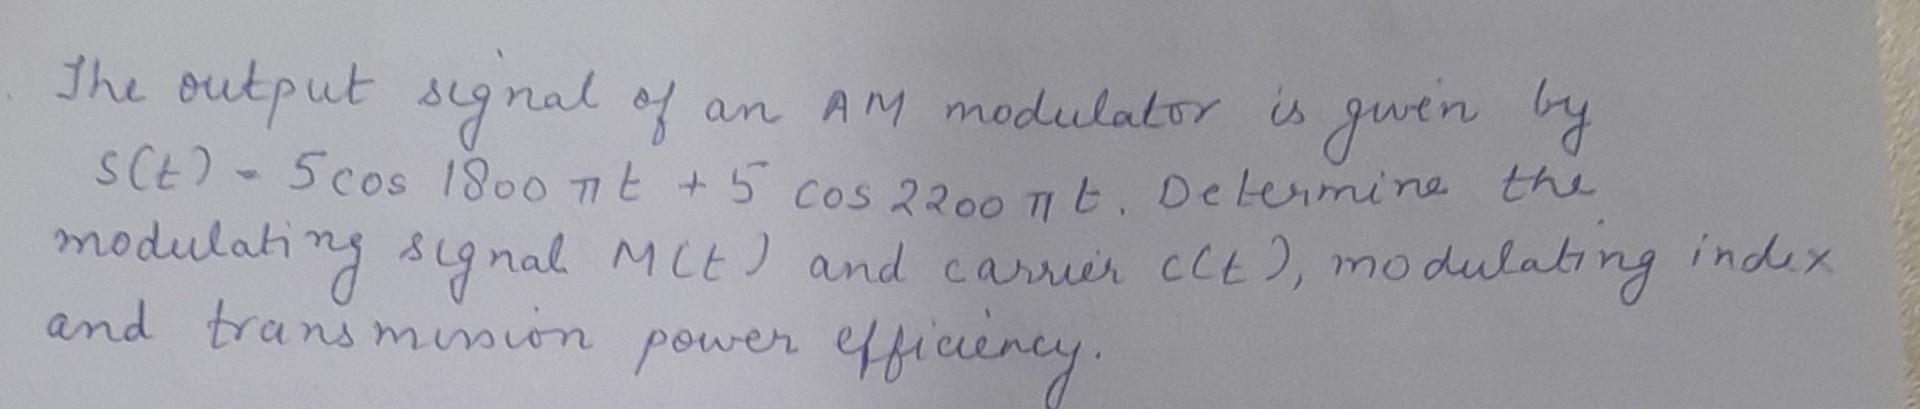 The output signal of an AM modulator is given by
S(t) = 5 cos 1800 πt + 5 cos 2200 πt. Determine the
modulating signal M(t) and carrier c(t), modulating index
and transmission power efficiency.